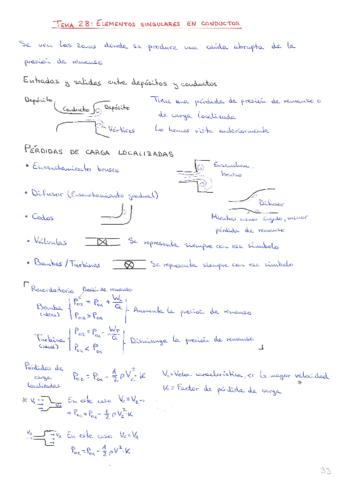 TEMA 28: ELEMENTOS SINGULARES EN CONDUCTOS
Se ven las zonas donde se produce una caída abrupta de la
presión de remanso
Entradas y salidas entre depósitos y conductos
Depósito
Conducto
Depósito
Vórtices
Tiene una pérdida de presión de remanso o
de carga localizada
Lo hemos visto anteriormente
PÉRDIDAS DE CARGA LOCALIZADAS
• Ensanchamiento brusco
Ensancham.
brusco
• Difusor (Ensanchamiento gradual)
Difusor
• Codos
Mientras menor ángulo, menor
pérdida de remanso
• Válvulas
Se representa siempre con ese símbolo
• Bombas / Turbinas
Se representa siempre con ese símbolo
Recordatorio
Presión de remanso
Bomba (ideal)
P02 = P01 + Wb/Q
P02 > P01
Aumenta la presión de remanso
Turbina (ideal)
P02 = P01 - WT/Q
P02 < P01
Disminuye la presión de remanso
Pérdidas de
carga
localizadas
P02 = P01 - 1/2 ρ Vc² · K
Vc = Veloc. característica, es la mayor velocidad
K = Factor de pérdida de carga
V1
V2
En este caso Vc = V2 →
→ P02 = P01 - 1/2 ρ V2² · K
V1
V2
En este caso Vc = V1
P02 = P01 - 1/2 ρ V1² · K
33